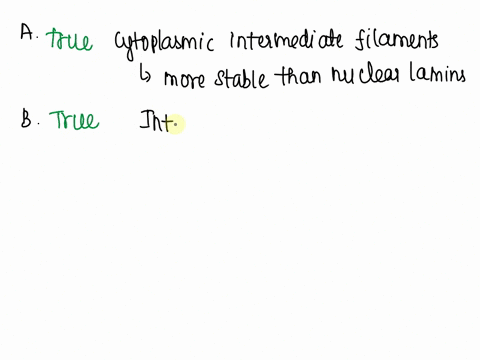 A. True Cytoplasmic Intermediate filaments
↳ more stable than nuclear lamins
B. True Int.